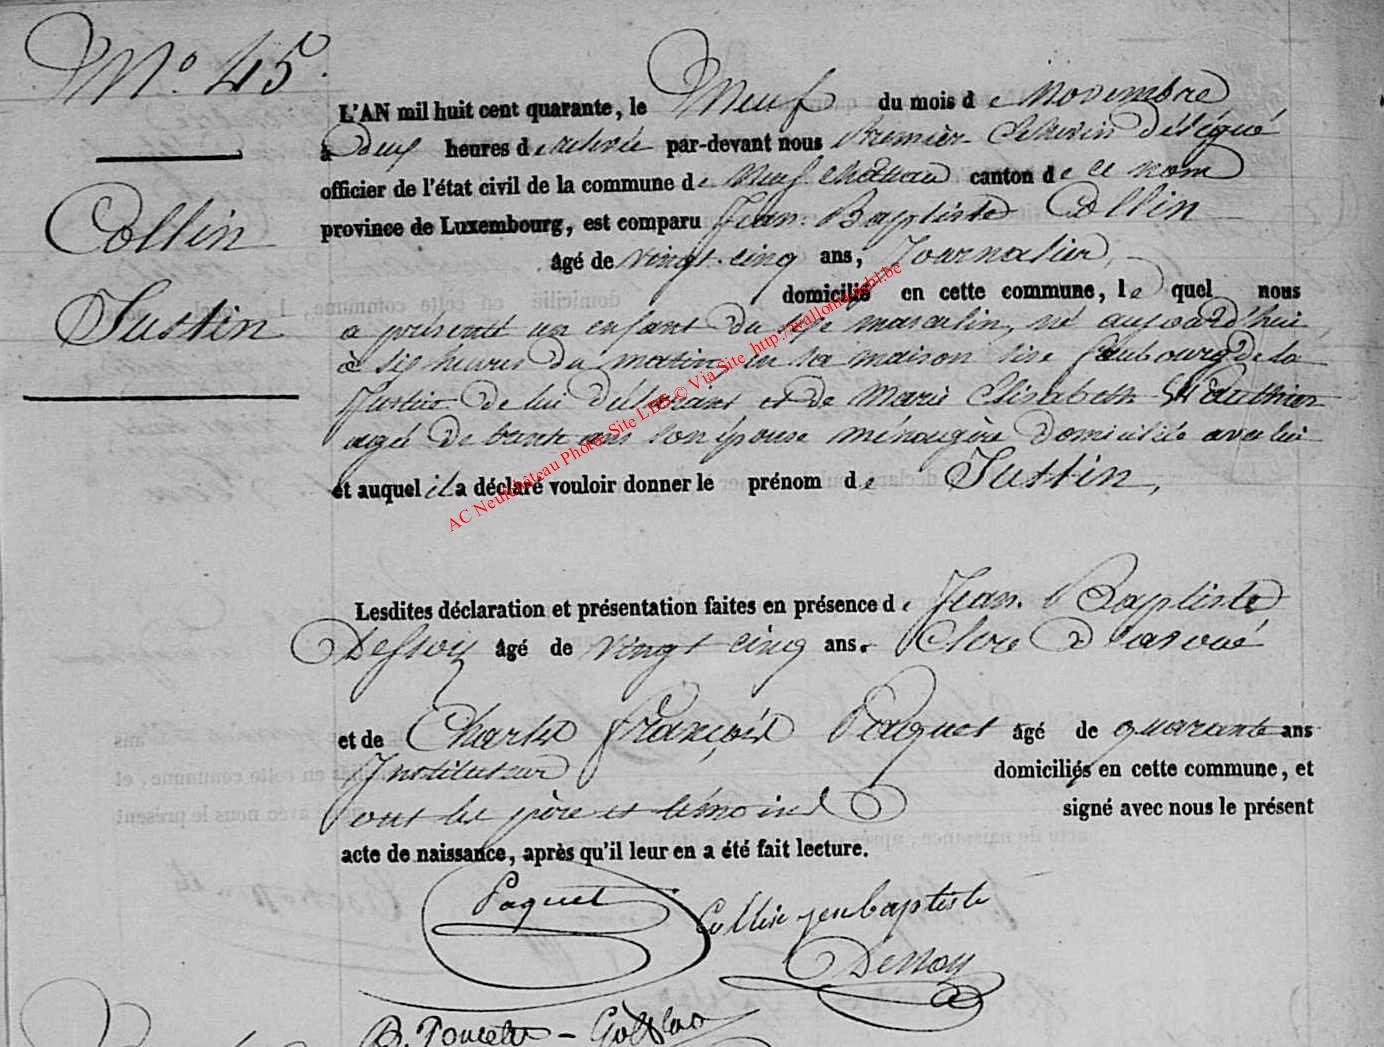 N.° 45.
Collin
Justin
L'AN mil huit cent quarante, le Neuf du mois de Novembre
à deux heures de relevée par-devant nous Premier Echevin délégué
officier de l'état civil de la commune de Neufchateau canton de ce nom
province de Luxembourg, est comparu Jean-Baptiste Collin
âgé de vingt-cinq ans, Journalier,
domicilié en cette commune, le quel nous
a présenté un enfant du sexe masculin, né aujourd'hui
à six heures du matin en sa maison sise faubourg de la
Justice de lui déclarant et de Marie Elisabeth Wauthier
agée de trente ans son épouse ménagère domiciliée avec lui
et auquel il a déclaré vouloir donner le prénom de Justin,
Lesdites déclaration et présentation faites en présence de Jean-Baptiste
Dessoy âgé de vingt cinq ans. Clerc d'avoué
et de Charles François Paquet âgé de quarante ans
Instituteur domiciliés en cette commune, et
ont les père et témoins signé avec nous le présent
acte de naissance, après qu'il leur en a été fait lecture.
Paquet Collin jean baptiste
Dessoy
B. Poncelet -
AC Neufchâteau Photo: Site LDS © Via Site http://wallonia.lebl.be